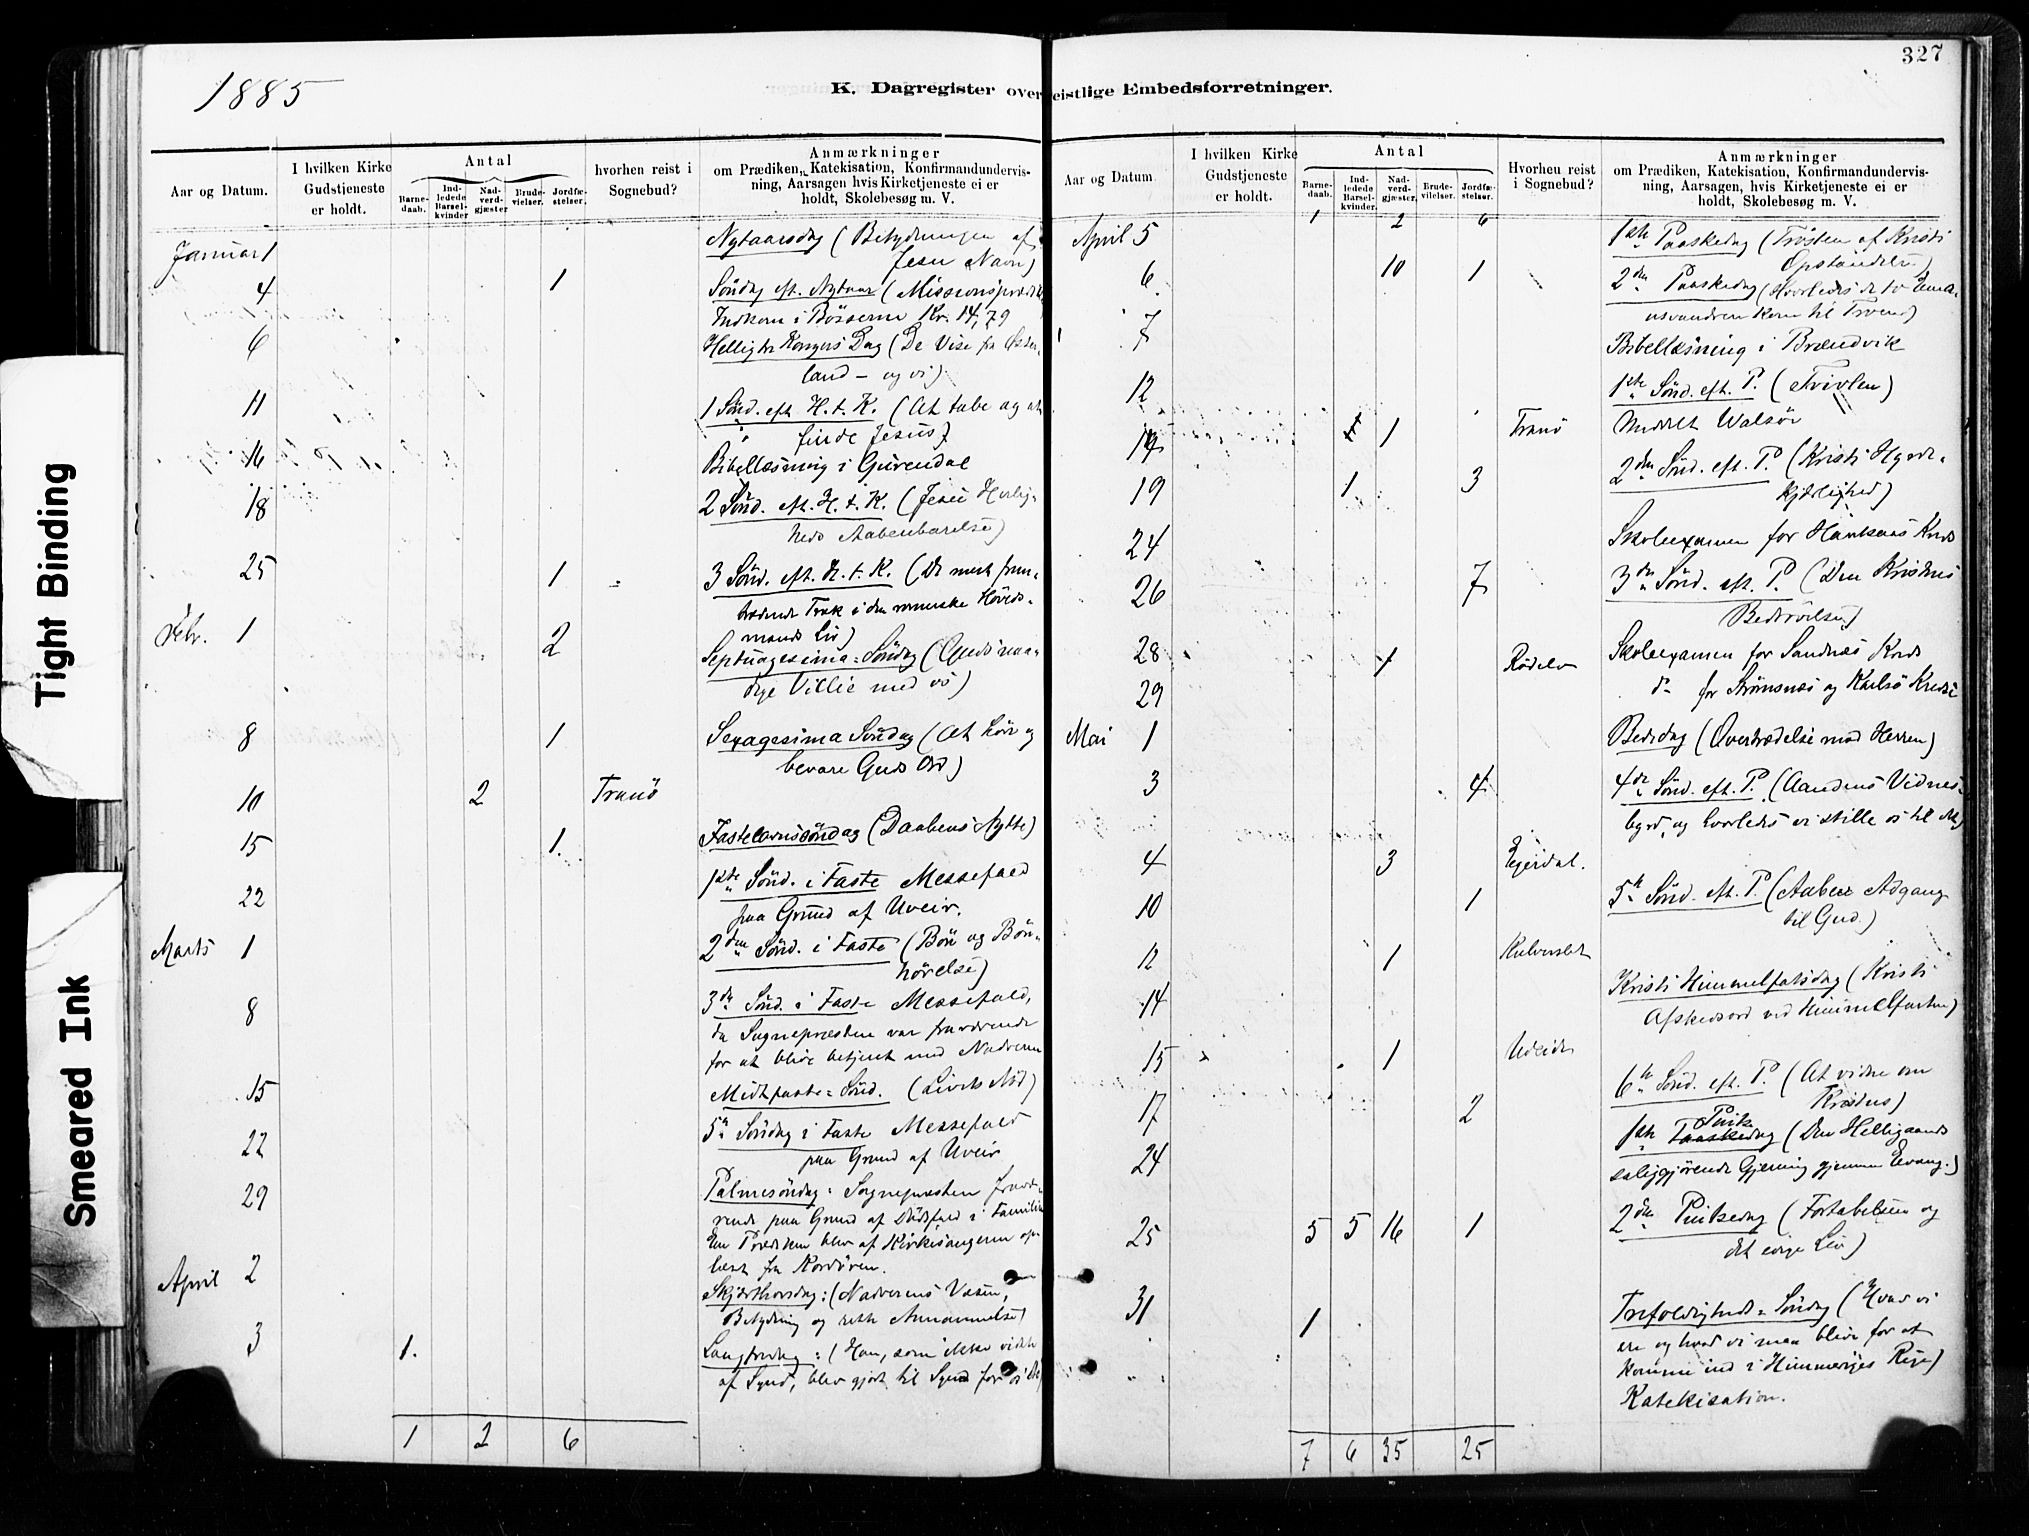 327
1885
K. Dagregister over
eistlige Embedsforretninger.
Aar og Datum.
I hvilken Kirke
Gudstjeneste
er holdt.
Antal
Barne-
daab.
Ind-
ledede
Barsel-
kvinder
Nad-
verd-
gjæster
Brude-
vielser.
Jordfæ-
stelser.
hvorhen reist i
Sognebud?
Anmærkninger
om Prædiken, Katekisation, Konfirmandundervis-
ning, Aarsagen hvis Kirketjeneste ei er
holdt, Skolebesøg m. V.
Januar 1
Nytaarsdag (Betydningen af
Jesu Navn)
4 1
Söndag eft. Nytaar (Missionspræd
Indkom i Bösserne Kr. 14,79
6
Hellig tre Kongers Dag (De Vise fra Öster-
land - og vi)
11
1 Sönd. eft. H. t. K. (At tabe og at
finde Jesus)
16
Bibellæsning i
18
2 Sönd. eft. H. t. K. (Jesu Herlig-
heds Aabenbarelse)
25 1
3 Sönd. eft. H. t. K. (De mest frem-
trædende Træk i den romerske Höveds-
mands Liv)
Febr. 1 2
Septuagesima-Söndag (Guds naa-
dige Villie med os)
8 1
Sexagesima Söndag (At höre og
bevare Guds Ord)
10 2 Tranö
15 1.
Fastelavnssöndag (Daabens Nytte)
22
1ste Sönd. i Faste Messefald
paa Grund af Uveir.
Marts 1
2den Sönd. i Faste (Bön og Bön-
hörelse)
8
3de Sönd. i Faste Messefald,
da Sognepræsten var fraværende
for at blive betjent med Nadveren
15
Midtfaste-Sönd. (Livets Nöd)
22
5te Söndag i Faste Messefald
paa Grund af Uveir
29
Palmesöndag: Sognepræsten fravæ-
rende paa Grund af Dödsfald i Familien
En Prædiken blev af Kirkesangeren op-
læst fra Kordören.
April 2
Skjærthorsdag: (Nadverens Væsen,
Betydning og rette Annammelse)
3 1.
Langfredag: (Han, som ikke vidste
af Synd, blev gjort til Synd for os
1 2 6
Aar og Datum
I hvilken Kirke
Gudstjeneste
er holdt.
Antal
Barne-
daab.
Ind-
ledede
Barsel-
kvinder.
Nad-
verd-
gjæster.
Brude-
vielser.
Jordfæ-
stelser.
Hvorhen reist
i Sognebud?
Anmærkninger
om Prædiken, Katekisation, Konfirmandundervis-
ning, Aarsagen, hvis Kirketjeneste ei er
holdt, Skolebesøg m. V.
April 5 1 2 6
1ste Paaskedag (Trösten af Kristi
Opstandelse)
6 10 1
2den Paaskedag (Hvorledes de to Ema-
usvandrere kom til Troen)
7
Bibellæsning i Brændvik
12
1ste Sönd. eft. P. (Tvivlen)
14 1 1 Tranö
19 1 3
2den Sönd. eft. P. (Kristi Hyrde-
kjærlighed)
24
Skoleexamen for Kreds
26 7
3de Sönd. eft. P. (Den Kristnes
Bedrövelse)
28 1
Skoleexamen for Sandnæs Kreds
29
do for Strömsnæs og Karlsö Kredse
Mai 1
Bededag (Overtrædelse mod Herren)
3 4
4de Sönd. eft. P. (Aandens Vidnes-
byrd, og hvorledes vi stille os til det)
4 3
10 1
5te Sönd. eft. P. (Aaben Adgang
til Gud.)
12 1
14
Kristi Himmelfartsdag (Kristi
Afskedsord ved Himmelfarten)
15 1
17 2
6te Sönd. eft. P. (At vidne om
Kristus)
24
1ste Pintsedag (Den Helligaands
saliggjörende Gjerning gjennem Evang.)
25 5 5 16 1
2den Pintsedag (Fortabelsen og
det evige Liv)
31 1
Trefoldigheds-Söndag (Hvad vi
ere og hvad vi maa blive for at
komme ind i Himmeriges Rige)
" "
Katekisation.
7 6 35 25
Tight Binding
Smeared Ink